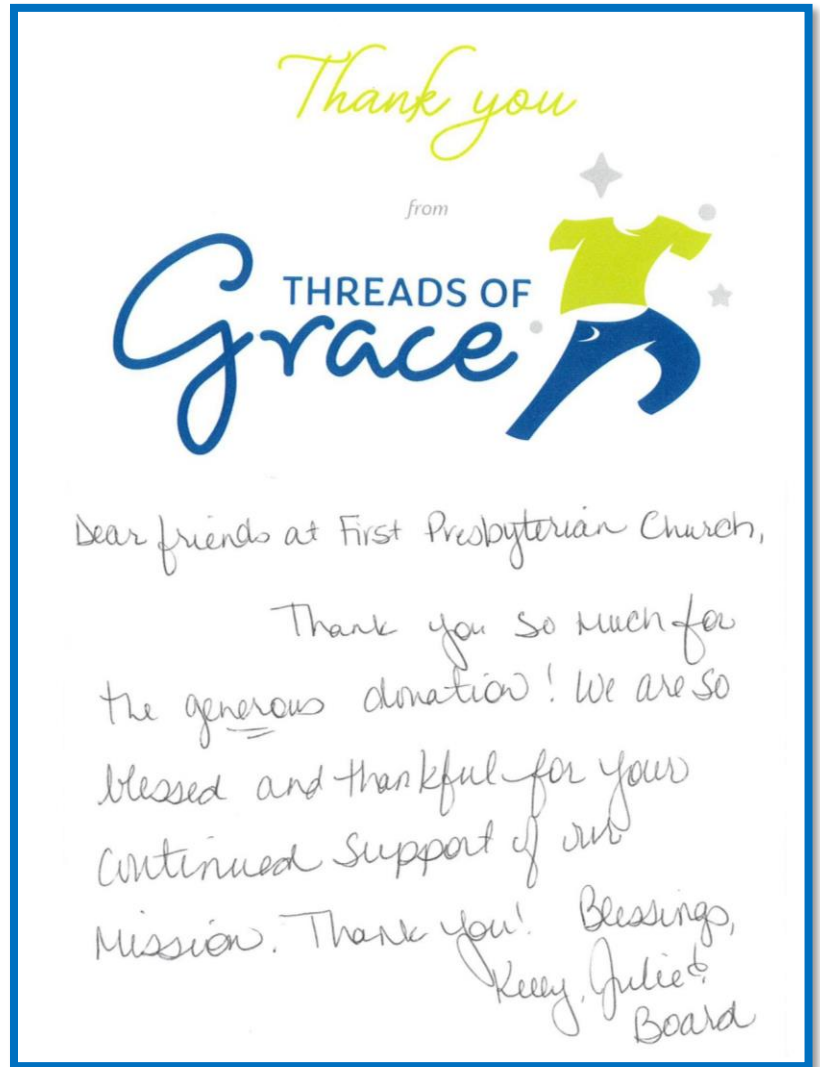 Thank you
from
THREADS OF
Grace
Dear friends at First Presbyterian Church,
Thank you so much for
the generous donation! We are so
blessed and thankful for your
continued support of our
Mission. Thank you! Blessings,
Kelly, Julie &
Board